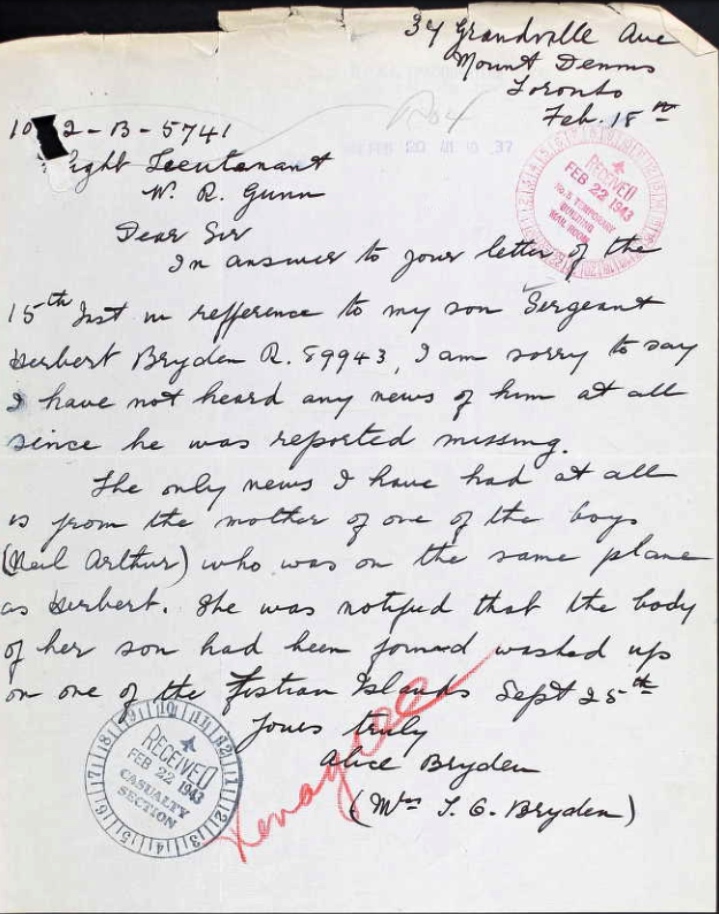 34 Grandville Ave
Mount Dennis
Toronto
Feb. 18th
R04
10 2-B-5741
ight Lieutenant
FEB 20 10 37
W. R. Gunn
RECEIVED
FEB 22 1943
No. 5 TEMPORARY
BUILDING
MAIL ROOM
Dear Sir
In answer to your letter of the
15th Inst in refference to my son Sergeant
Herbert Bryden R. 89943, I am sorry to say
I have not heard any news of him at all
since he was reported missing.
The only news I have had at all
is from the mother of one of the boys
(Neil Arthur) who was on the same plane
as Herbert. She was notified that the body
of her son had been found washed up
on one of the Fistian Islands Sept 25th
Yours truly
Alice Bryden
(Mrs T. G. Bryden)
RECEIVED
FEB 22 1943
CASUALTY
SECTION